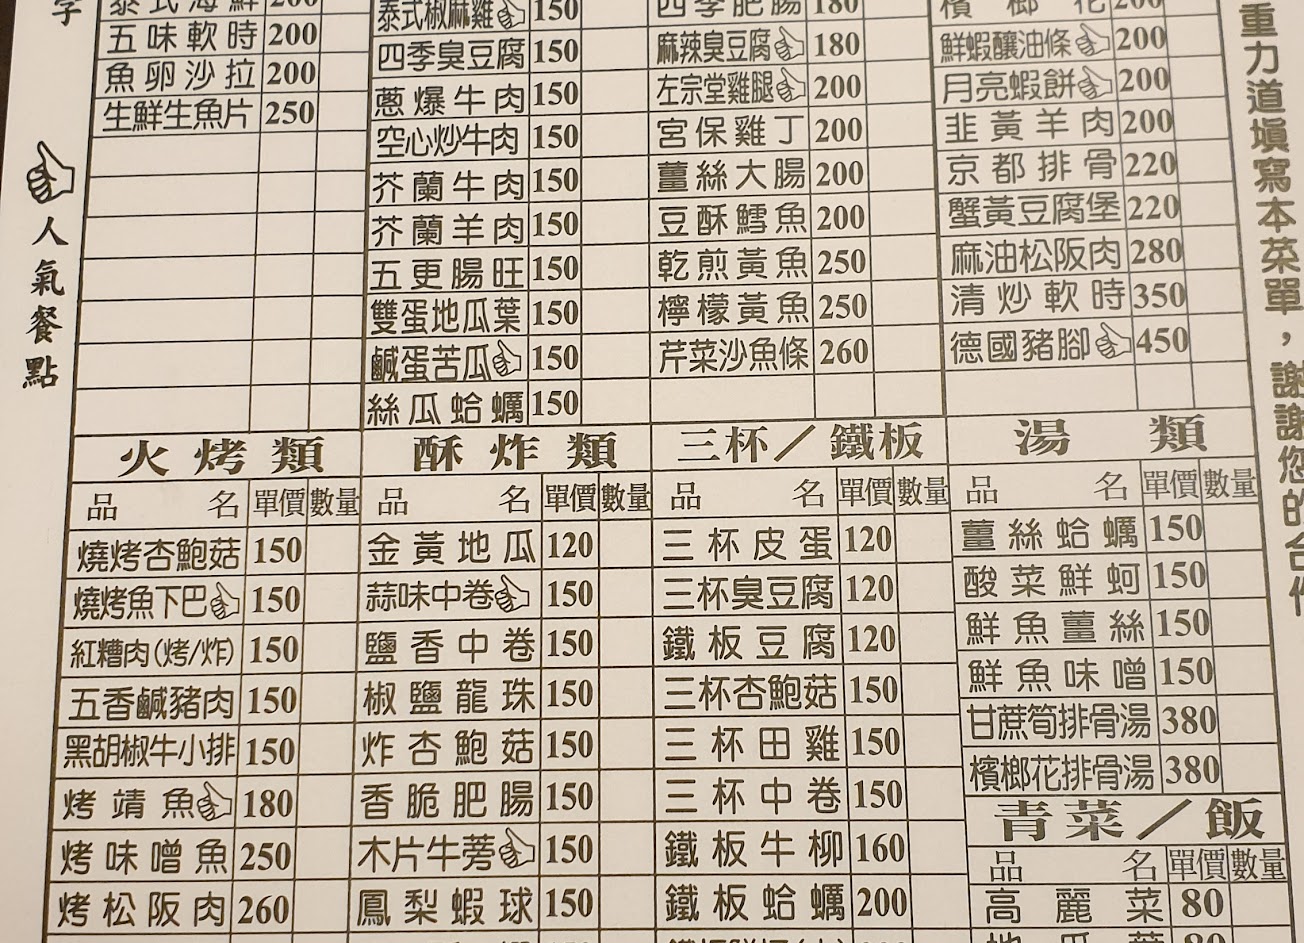 字
人氣餐點
泰式海鮮 200
五味軟時 200
魚卵沙拉 200
生鮮生魚片 250
泰式椒麻雞 150
四季臭豆腐 150
蔥爆牛肉 150
空心炒牛肉 150
芥蘭牛肉 150
芥蘭羊肉 150
五更腸旺 150
雙蛋地瓜葉 150
鹹蛋苦瓜 150
絲瓜蛤蠣 150
四季肥腸 180
麻辣臭豆腐 180
左宗堂雞腿 200
宮保雞丁 200
薑絲大腸 200
豆酥鱈魚 200
乾煎黃魚 250
檸檬黃魚 250
芹菜沙魚條 260
檳榔花 200
鮮蝦釀油條 200
月亮蝦餅 200
韭黃羊肉 200
京都排骨 220
蟹黃豆腐堡 220
麻油松阪肉 280
清炒軟時 350
德國豬腳 450
重力道填寫本菜單,謝謝您的合作
火烤類
品名 單價 數量
燒烤杏鮑菇 150
燒烤魚下巴 150
紅糟肉(烤/炸) 150
五香鹹豬肉 150
黑胡椒牛小排 150
烤靖魚 180
烤味噌魚 250
烤松阪肉 260
酥炸類
品名 單價 數量
金黃地瓜 120
蒜味中卷 150
鹽香中卷 150
椒鹽龍珠 150
炸杏鮑菇 150
香脆肥腸 150
木片牛蒡 150
鳳梨蝦球 150
三杯/鐵板
品名 單價 數量
三杯皮蛋 120
三杯臭豆腐 120
鐵板豆腐 120
三杯杏鮑菇 150
三杯田雞 150
三杯中卷 150
鐵板牛柳 160
鐵板蛤蠣 200
湯類
品名 單價 數量
薑絲蛤蠣 150
酸菜鮮蚵 150
鮮魚薑絲 150
鮮魚味噌 150
甘蔗筍排骨湯 380
檳榔花排骨湯 380
青菜/飯
品名 單價 數量
高麗菜 80
地瓜葉 80